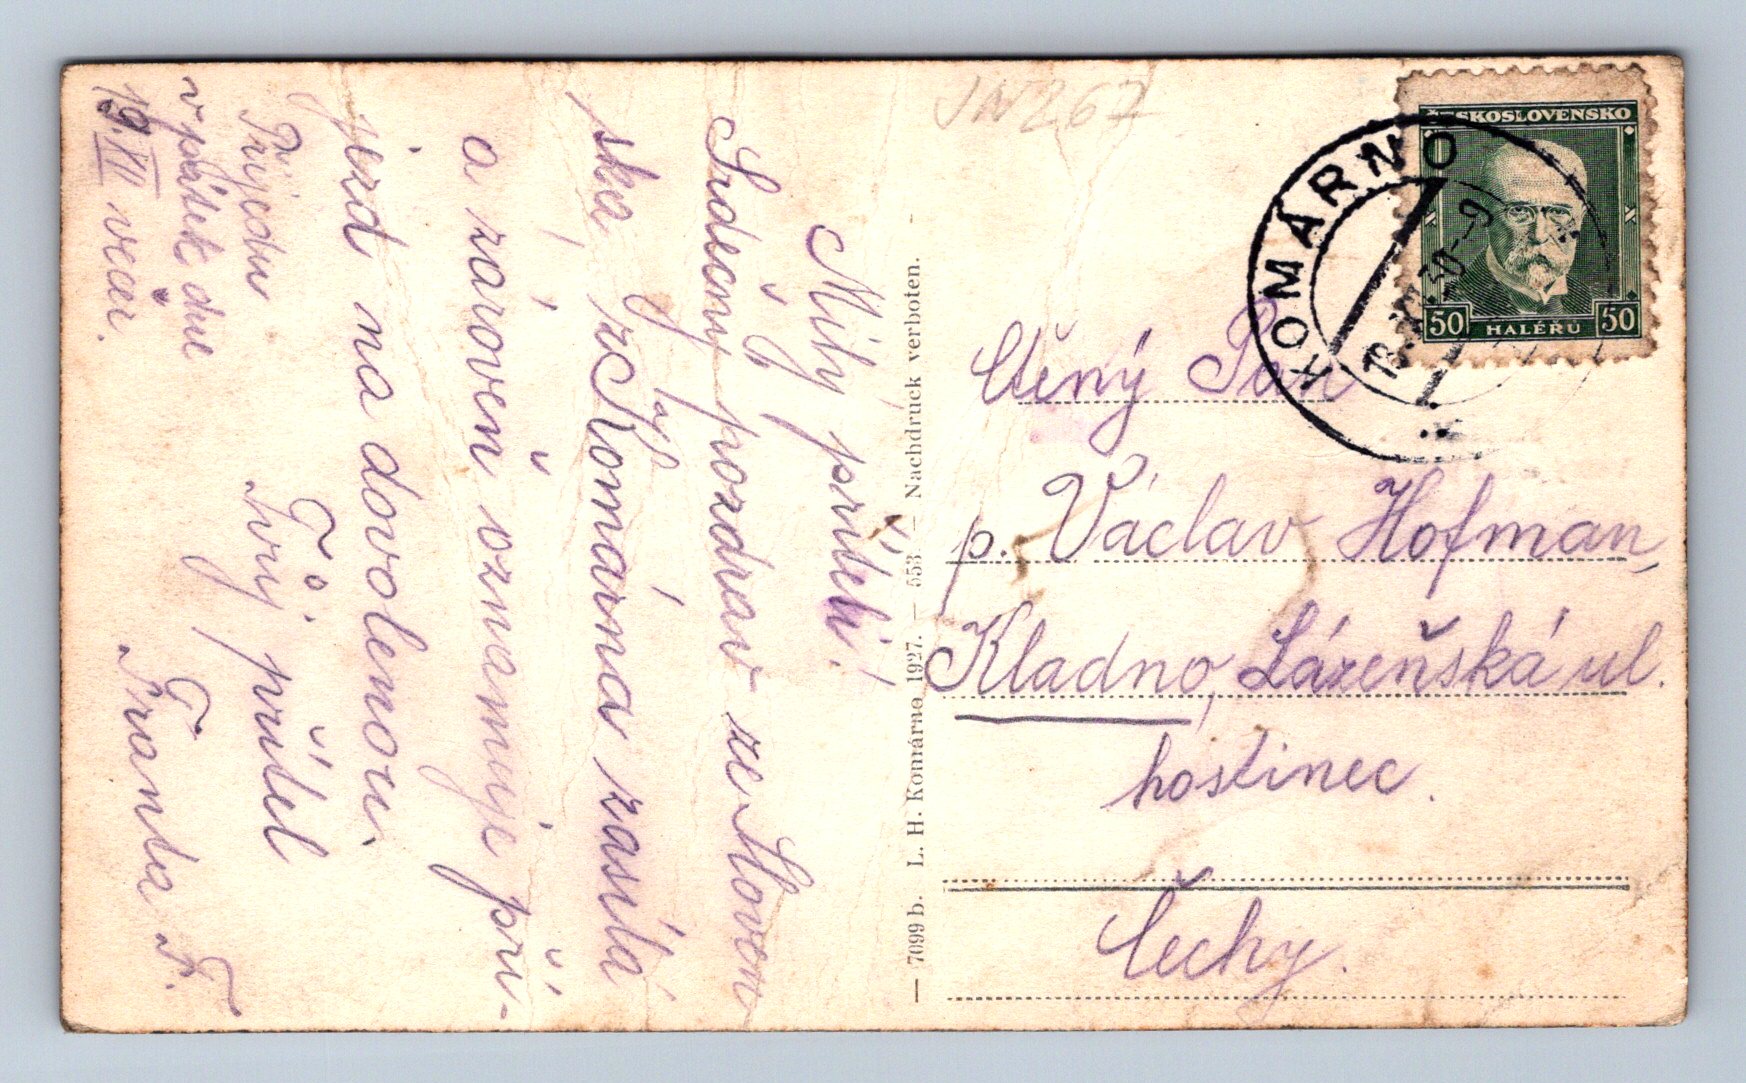 Milý příteli!
Srdečný pozdrav ze Sloven
ska, z Komárna zasílá
a zároveň oznamuje pří-
jezd na dovolenou.
Tvůj přítel
Franta F.
Přijedu
v pátek dne
19.XII večer.
— 7099 b. L. H. Komárno 1927. — 553 — Nachdruck verboten.
JN267
ČESKOSLOVENSKO
50 HALÉŘŮ 50
KOMÁRNO
Ctěný Pan
p. Václav Hofman,
Kladno, Lázeňská ul.
hostinec.
Čechy.